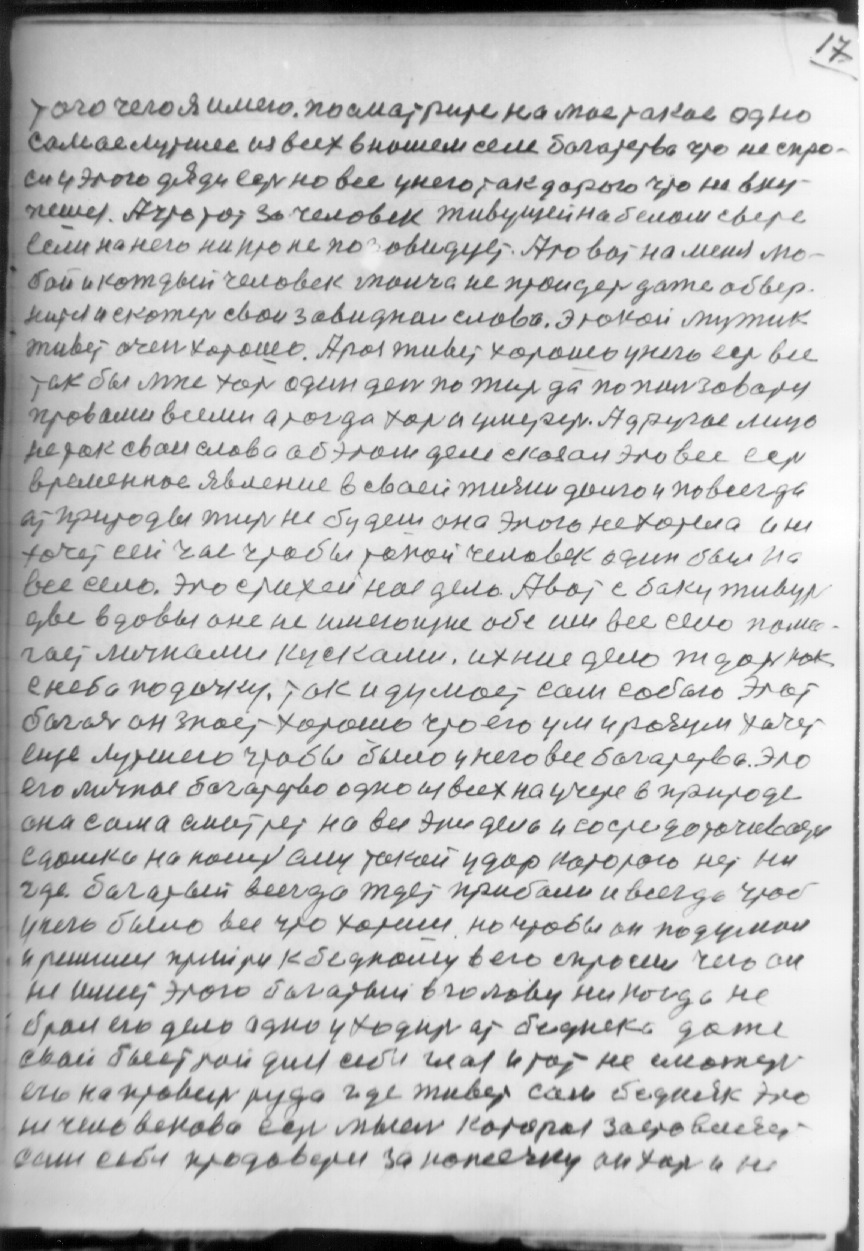 17
того чего я имею. посматрите на мое такое одно
самое лутшее из всех в нашем селе богатства что не спро-
си у этого дяди есть но все у него так дорого что не вку-
пешя. А что тот за человек живущей на белом свете
если на него ни кто не позовидует. А то вот на меня лю-
бой и кождый человек молча не пройдет даже обвер-
нитя и скожет свои завиднаи слова. Этокой мужик
живет очен хорошо. А роз живет хорошо у него есть все
так бы мне хоть один ден пожить да попользовать
провами всеми а тогда хоть и умереть. А другое лицо
не так свои слова об этом деле сказал это все есть
временное явление в своей жизни долго и повсегда
от природы жить не будеш она этого не хотела и ни
хочет сей час чтобы такой человек один был на
все село. Это стихейное дело. А вот с баку живут
две вдовы оне не имеющие обе им все село пома-
гает личнами кусками. ихние дело ждать как
с неба подачку. так и думает сам собою Этот
богач он знает хорошо что его ум и розум хочет
еще лутшего чтобы было у него все богатства. Это
его личное богатство одно из всех на учете в природе
она сама смотрет на все эти дела и сосредоточивает
такой удар которого нет ни
где. богатый всегда ждет прибали и всегда чтоб
у него было все что хотиш. но чтобы он подумал
и решил прийти к бедному в его спросил чего он
не имеет этого богатый в голову ни когда не
брал его дело одно уходить от бедняка даже
свой быстрой для себя глаз и тот не сможет
его направить туда где живет сам бедняк это
ни человекова есть мысль которая заставляет
сам себя продовать за копеечку он хоть и не